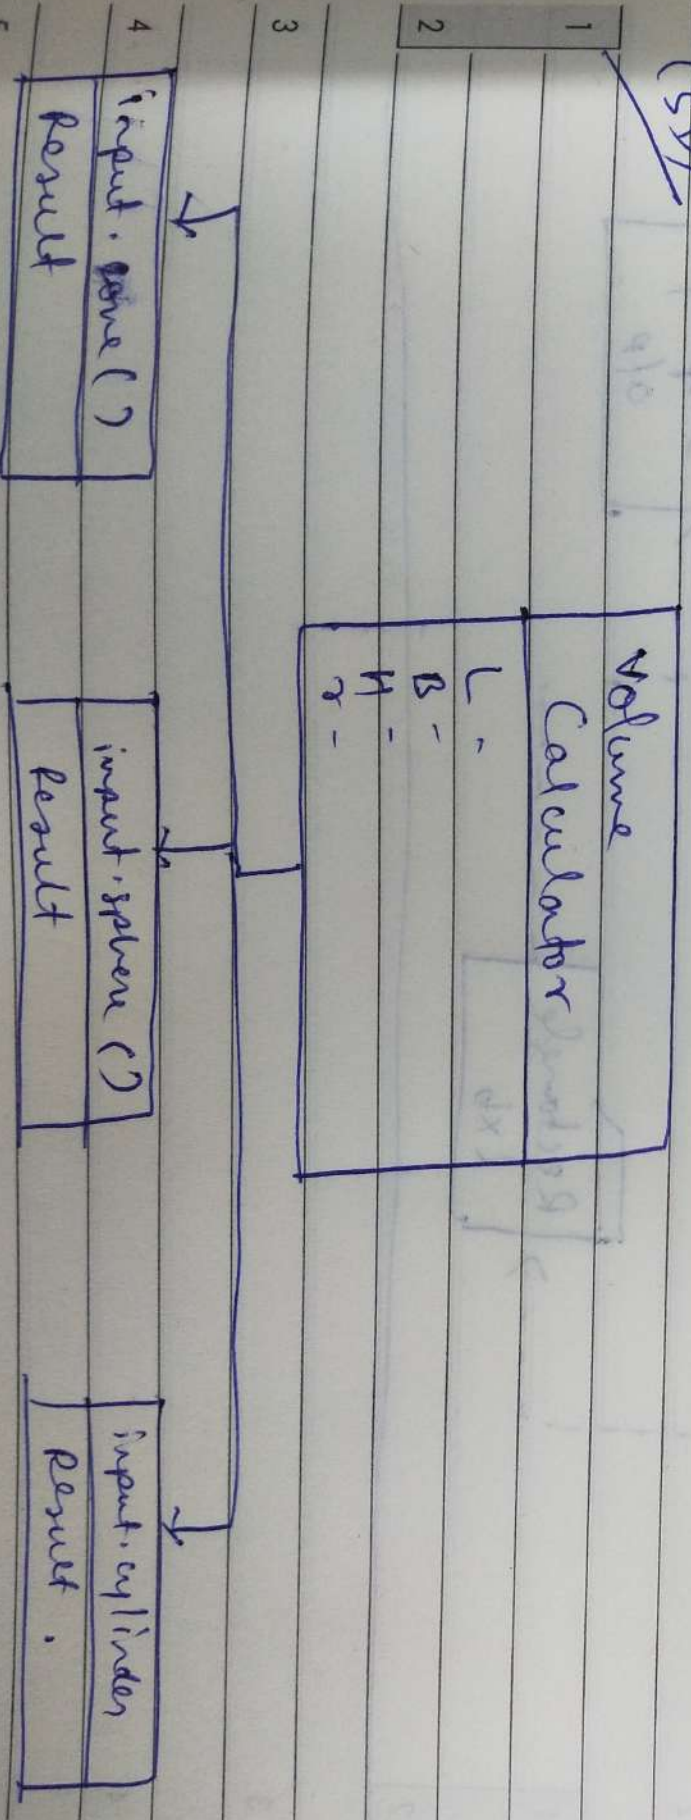 1
2
3
4
Volume
Calculator
L -
B -
H -
r -
input.cone()
Result
input.sphere()
Result
input.cylinder
Result.